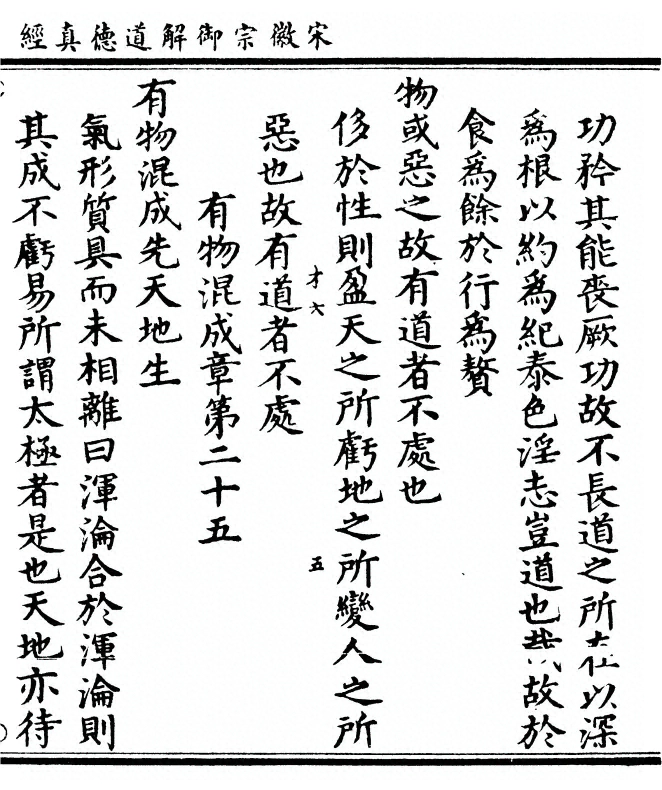 宋徽宗御解道德真經
功矜其能喪厥功故不長道之所在以深
爲根以約爲紀泰色淫志豈道也哉故於
食爲餘於行爲贅
物或惡之故有道者不處也
侈於性則盈天之所虧地之所變人之所
才六
五
惡也故有道者不處
有物混成章第二十五
有物混成先天地生
氣形質具而未相離曰渾淪合於渾淪則
其成不虧易所謂太極者是也天地亦待